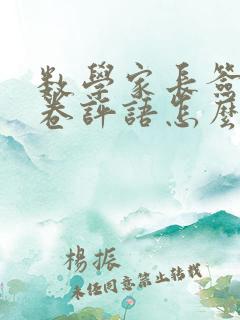 数學家長簽
卷評語怎麼
楊振
未經同意禁止轉載